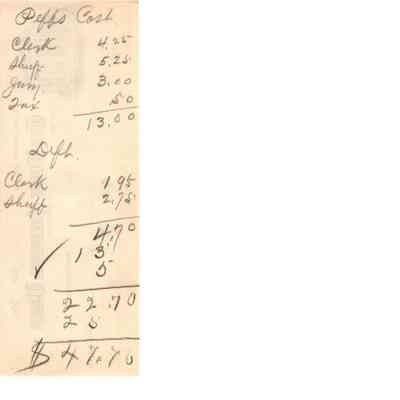 Peffs Cost
Clerk 4.25
Shuff 5.25
Jury 3.00
Tax .50
13.00
Deft.
Clerk 1.95
Sheriff 2.75
4.70
13.
5
22.70
25
$47.70